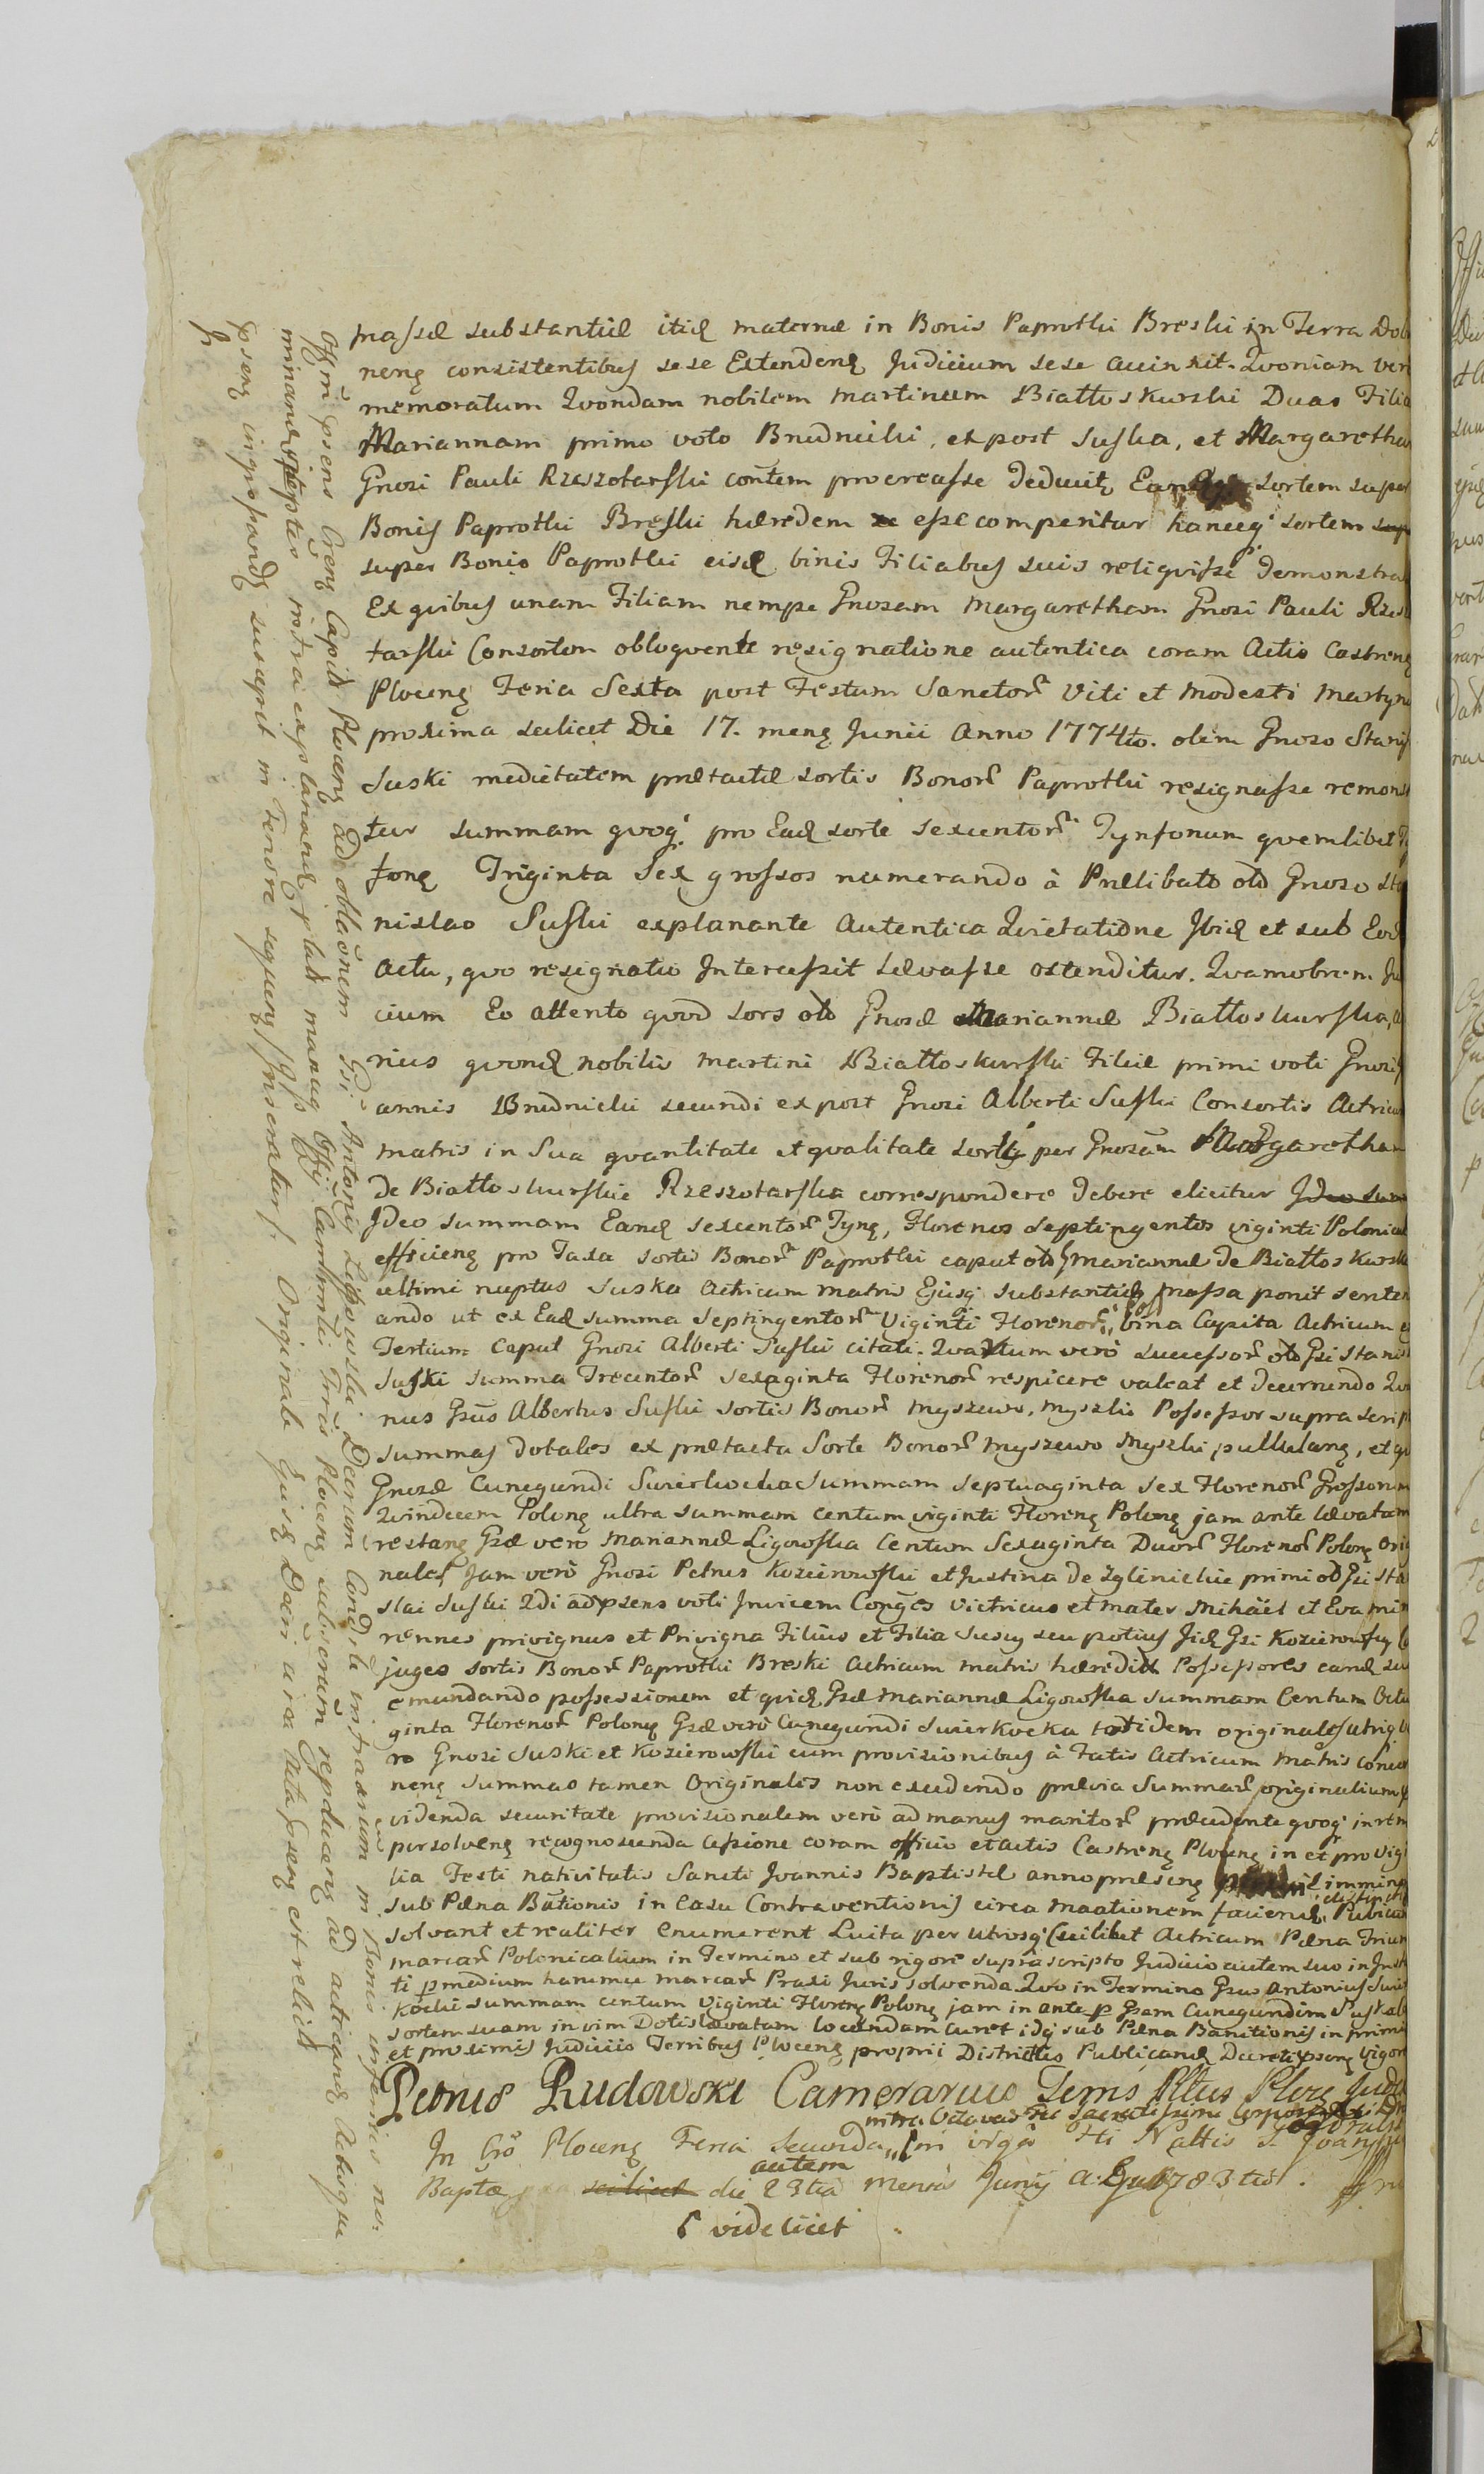 massæ substantiæ itid maternæ in Bonis Paprotki Breski in Terra Dob
neng consistentibus sese Extendeng Judicium sese accinxit. Quoniam ver
memoratum Quondam nobilem Martinum Białtoskurski Duas Filia
Mariannam primo voto Brudnicki, ex post Suska, et Margaretham
Gnosi Pauli Rzeszotarski contem procreasse Deducit, sortem super
Bonis Paprotki Breski hæredem esse comperitur hancq sortem
super Bonis Paprotki eisd binis Filiabus suis reliquisse demonstra
Ex quibus unam Filiam nempe Gnosam Margaretham Gnosi Pauli Rzes
tarski Consortem obloquente resignatione autentica coram Actis Castreng
Ploceng Feria Sexta post Festum Sanctor Viti et Modesti Martyru
proxima scilicet Die 17. meng Junii Anno 1774to. olim Gnoso Stanis
Suski medietatem prætactæ sortis Bonor Paprotki resignasse remons
tur summam quoq pro Ead sorte sexcentor Tynfonum quemlibet
fong Triginta Sex grossos numerando à Prælibato olo Gnoso Sta
nislao Suski explanante Autentica Quietatione Ibid et sub Eod
actu, quo resignatio Intercessit Levasse ostenditur. Quamobrem Ju
cium Eo attento quod sors olo Gnosæ Mariannæ Białtoskurska,
rius quond nobilis Martini Białtoskurski Filiæ primi voti Gnosi
annis Brudnicki secundi ex post Gnosi Alberti Suski Consortis Actricum
matris in Sua quantitate et qualitate sorti per Gnosam Margaretham
de Białtoskurskie Rzeszotarska correspondere debere elicitur Ideo sum
Ideo summam Eand sexcentor Tyng, Florenos Septingentos viginti Polonical
efficieng pro Taxa sortis Bonor Paprotki caput olo Mariannæ De Białtoskursk
ultimi nuptus Suska Actricum matris Ejusq substantiæ massa ponit senten
ando ut ex Ead summa Septingentor Viginti Florenor bina Capita Actricum
Tertium Caput Gnosi Alberti Suski citati. Quartum vero successor olo Gsi Stanis
Suski summa Trecentor sexaginta Florenor respicere valeat et decernendo Qua
nus Gsus Albertus Suski sortis Bonor Myszewo, Myszki Possessor supra script
summas dotales ex prætacta Sorte Bonor Myszewo Myszki pullulang, et
Gnosæ Cunegundi Swierkocka Summam Septuaginta sex Florenor Grossorum
Quindecem Polong ultra summam centum viginti Floreng Polong jam ante levatam
restang Gsæ vero Mariannæ Ligowska Centum Sexaginta Duor Florenor Polong Ori
nales, Jam vero Gnosi Petrus Kozierowski et Justina de Żglinickie primi olo Gsi Sta
slai Suski 2di ad præsens voti Invicem Conges Victricus et mater Mihäel et Eva min
rennes privignus et Privigna Filius et Filia Suscy seu potius Iid Gsi Kozierowscy
juges sortis Bonor Paprotki Breski Actricum matris hæredit Possessores eand
emundando possessionem et quid Gsæ Mariannæ Ligowska summam Centum Octu
ginta Florenor Polong Gsæ vero Cunegundi Swierkocka totidem originales
ro Gnosi Suski et Kozierowski cum provisionibus à Fatis Actricum Matris concer
neng summas tamen Originales non excedendo prævia Summar originalium
videnda securitate provisionalem vero ad manus maritor præcedente quoq
persolveng recognoscenda cessione coram officio et actis Castreng Ploceng in et pro Vigi
lia Festi nativitatis Sancti Joannis Baptistæ anno præseng
sub Pæna Banitionis in Casu Contraventionis circa
solvant et realiter Enumerent Luita per utrosq Scilibet Actricum Pæna Trium
marcar Polonicalium in Termino et sub rigore suprascripto Judicio autem suo in
ti p medium hanmcu marcar Praxi Juris solvenda. Quo in Termino Gsus Antonius Swier
kocki summam centum Viginti Floreng Polong jam in ante p Gsam Cunegundem Suskal
sortem suam in vim Dotis levatam locandam curet idq sub Pæna Banitionis in primis
et proximis Judiciis Terribus Ploceng proprii Districtus Publicand Decreti præseng vigore
Petrus Rudowski Camerarius Terris Pltus Ploc Judex
intra Octavas Fti Sacratissimi Corporis
In Cro Ploceng Feria Secunda in vigã Fti Nattis S. Joannis
autem
Baptæ scilicet die 23tia Mensis Junij A. 1783tio
videlicet
Offm Præsens Creng Capitle Ploceng ad oblaõnem Gsi Antonij Ligowski Decreti Cond intraserum in Bonis inferius no:
minand interpositis rptrai explanand ptas manu Gsi Camrari Trris Ploceng subserum repducens ad acticand Actisque
præseng ingrossand suscepit in Tenore sequeng / Inseratur /. Originale Ejusd Docti circa Acta præseng est relict